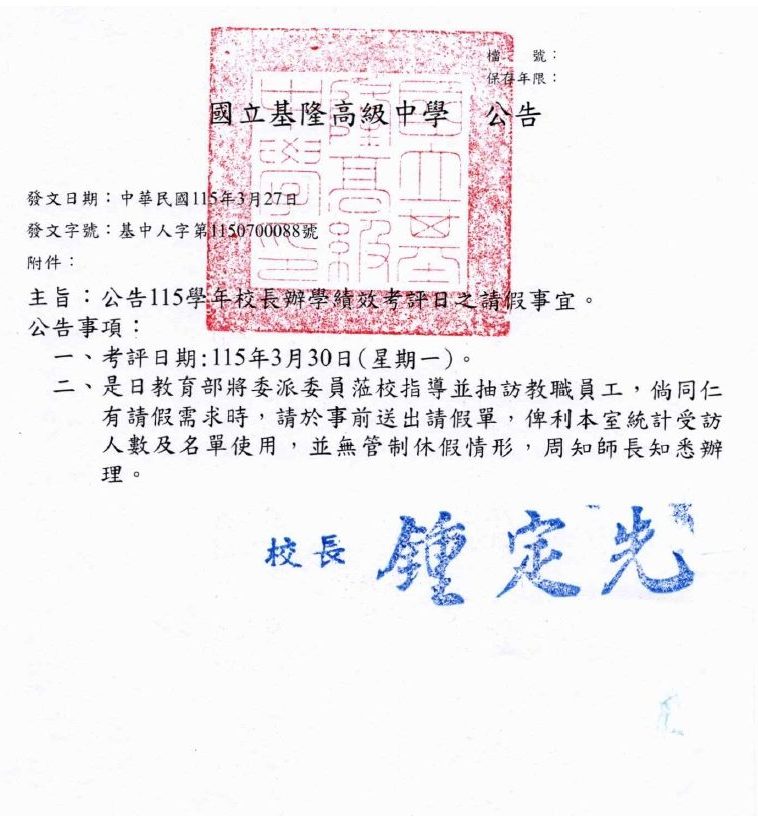 檔　　號：
保存年限：
國立基隆高級中學　公告
發文日期：中華民國115年3月27日
發文字號：基中人字第1150700088號
附件：
主旨：公告115學年校長辦學績效考評日之請假事宜。
公告事項：
一、考評日期:115年3月30日(星期一)。
二、是日教育部將委派委員蒞校指導並抽訪教職員工，倘同仁
有請假需求時，請於事前送出請假單，俾利本室統計受訪
人數及名單使用，並無管制休假情形，周知師長知悉辦
理。
校長 鍾定先
國立基
隆高級
中學印